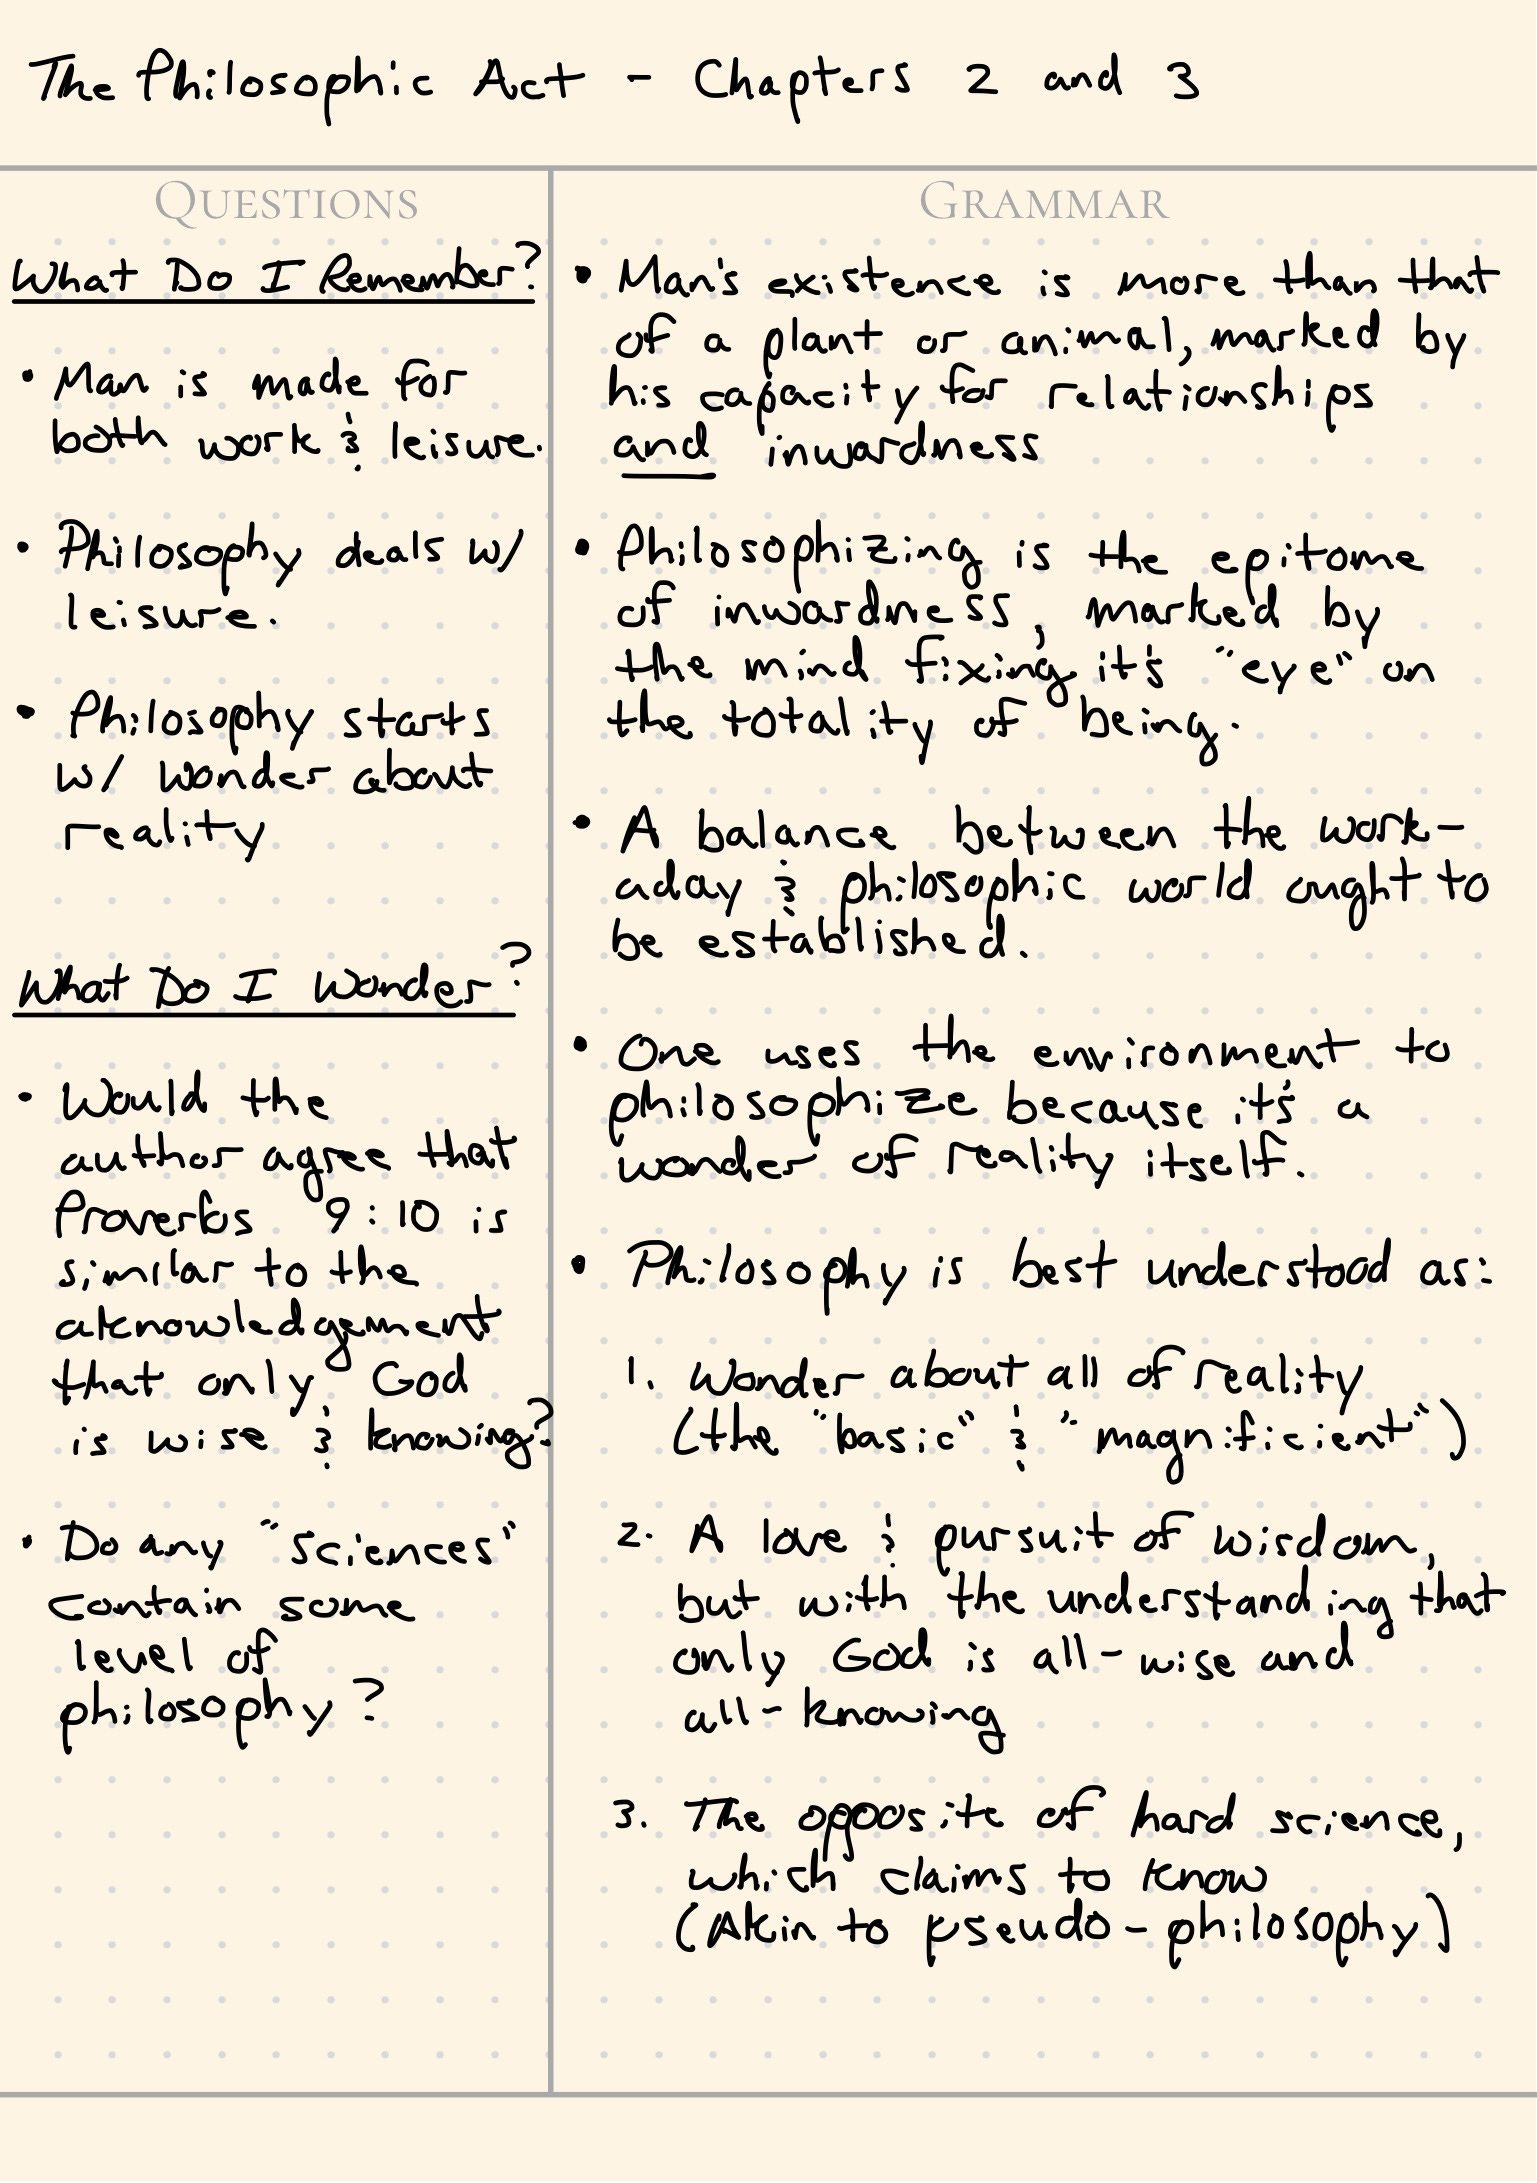 The Philosophic Act - Chapters 2 and 3
QUESTIONS
What Do I Remember?
• Man is made for
both work & leisure.
• Philosophy deals w/
leisure.
• Philosophy starts
w/ wonder about
reality
What Do I Wonder?
• Would the
author agree that
Proverbs 9:10 is
similar to the
aknowledgement
that only God
is wise & knowing?
• Do any "sciences"
contain some
level of
philosophy?
GRAMMAR
• Man's existence is more than that
of a plant or animal, marked by
his capacity for relationships
and inwardness
• Philosophizing is the epitome
of inwardness, marked by
the mind fixing it's "eye" on
the totality of being.
• A balance between the work-
aday & philosophic world ought to
be established.
• One uses the environment to
philosophize because it's a
wonder of reality itself.
• Philosophy is best understood as:
1. Wonder about all of reality
(the "basic" & "magnificient")
2. A love & pursuit of wisdom,
but with the understanding that
only God is all-wise and
all-knowing
3. The opposite of hard science,
which claims to know
(Akin to pseudo-philosophy)